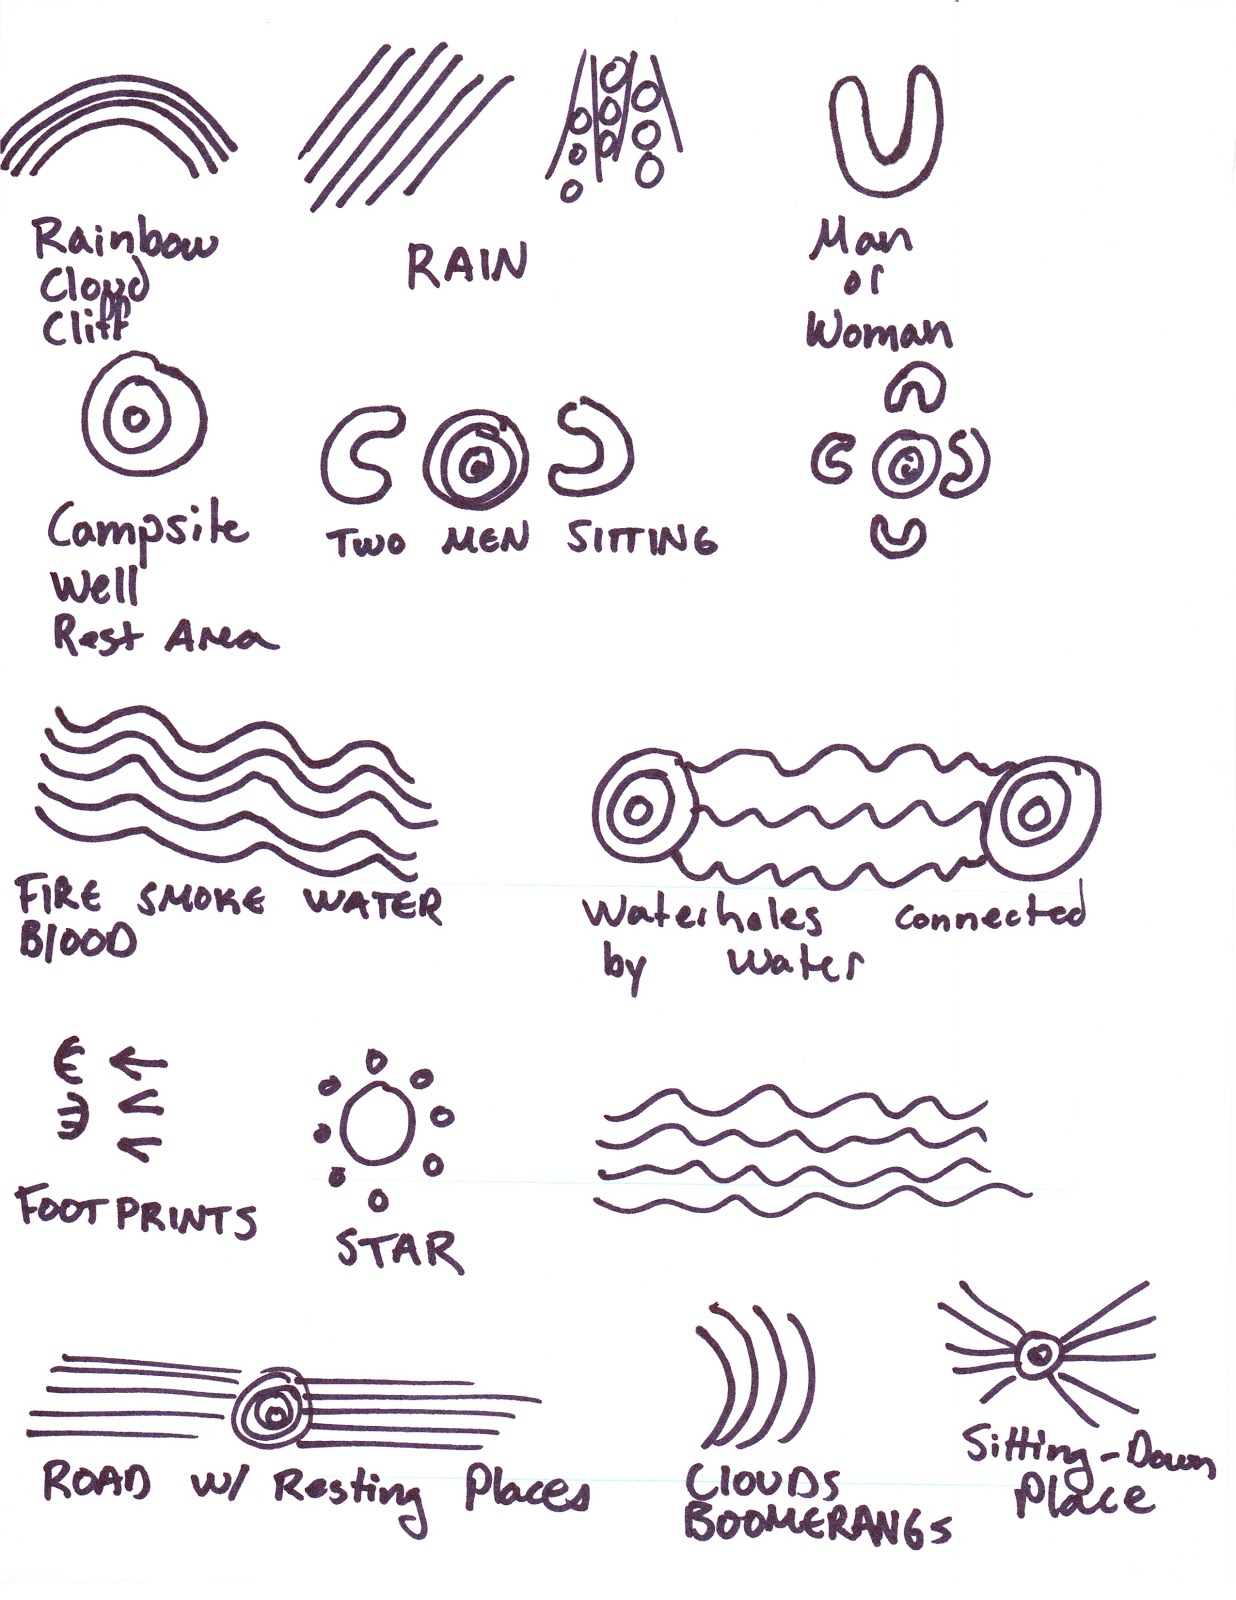 Rainbow
Cloud
Cliff
RAIN
Man
or
Woman
Campsite
Well
Rest Area
TWO MEN SITTING
FIRE SMOKE WATER
BLOOD
Waterholes connected
by Water
FOOTPRINTS
STAR
ROAD w/ Resting Places
CLOUDS
BOOMERANGS
Sitting-Down
Place